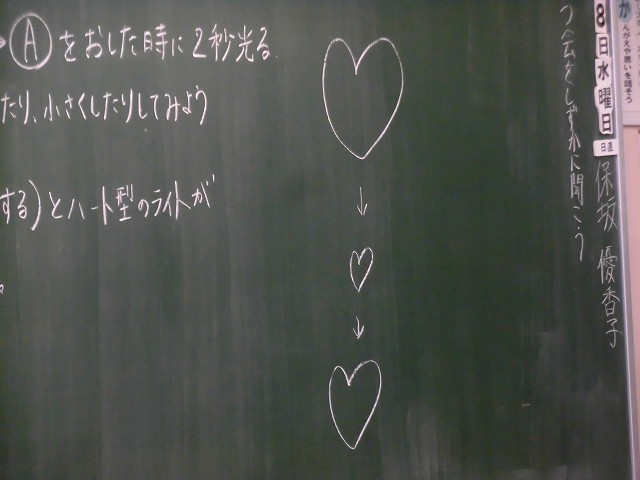 Ⓐをおした時に2秒光る。
たり、小さくしたりしてみよう
する)とハート型のライトが
。
8日水曜日
日直
保坂 優香子
つ会をしずかに聞こう
んがえや思いを話そう